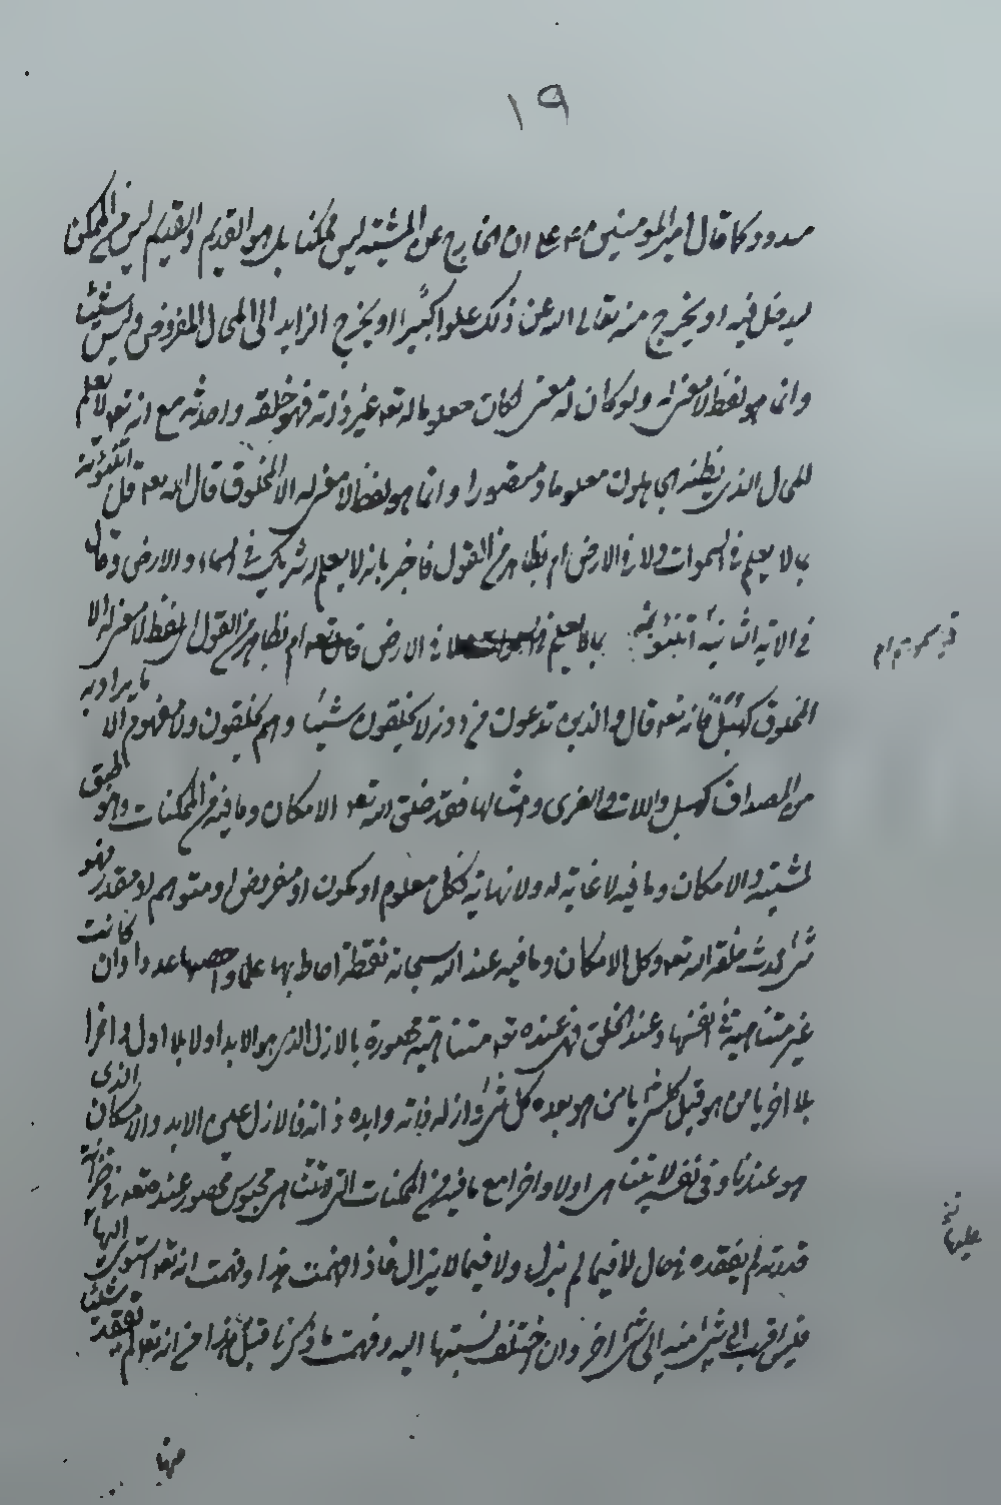 ١٩
مسدود كما قال امير المؤمنين ان الخارج عن المشية ليس ممكنا بل هو القديم والقديم ليس من الممكن
ليدخل فيه او يخرج منه تعالى الله عن ذلك علوا كبيرا او يخرج الزايد الى المحال المفروض وليس شيئا
وانما هو لفظ لا معنى له ولو كان له معنى لكان معلوما له تعه غير ذاته فهو خلقه واحدثه مع انه تعه لا يعلم
المحال الذى يظنه الجاهلون معلوما ومتصورا وانما هو لفظ لا معنى له الا المخلوق قال الله تعه قل اتنبؤنه
بما لا يعلم فى السموات ولا فى الارض ام بظاهر من القول فاخبر بانه لا يعلم له شريك فى السماء والارض وقال
فى الاية الثانية اتنبؤنه بما لا يعلم فى الارض ام بظاهر من القول اى لفظ لا معنى له الا
ما يراد به
المخلوق كهبل فانه تعه قال والذين تدعون من دونه لا يخلقون شيئا وهم يخلقون ولا مفهوم الا
من المصداق كهبل واللات والعزى وامثالها فقد خلق الله تعه الامكان وما فيه من الممكنات وهو طبق
لمشيته والامكان وما فيه لا غاية له ولا نهاية فكل معلوم او مكون او مفروض او متوهم او مقدر فهو
شئ محدث خلقه الله تعه وكل الامكان وما فيه عند الله سبحانه نقطة احاط بها علما واحصاها عددا وان كانت
غير متناهية فى نفسها وعند الخلق فهى عنده تعه متناهية محصورة بالازل الذى هو الابد اولا بلا اول واخرا
بلا اخر يا من هو قبل كل شئ يا من هو بعد كل شئ وازله ذاته وابده ذاته فالازل عين الابد والامكان الذى
هو عندنا وفى نفسه لا يتناهى اولا واخرا مع ما فيه من الممكنات التى لا تتناهى محبوس محصور عنده تعه فى خزانة
قدرته لم يفقده فى حال لا فيما لم يزل ولا فيما لا يزال فاذا فهمت هذا وفهمت انه تعه استوى اليها
فليس اقرب الى شئ منه الى شئ اخر وان اختلف نسبتها اليه وفهمت ما ذكرنا قبل هذا من انه تعه لم يفقد شيئا
منها